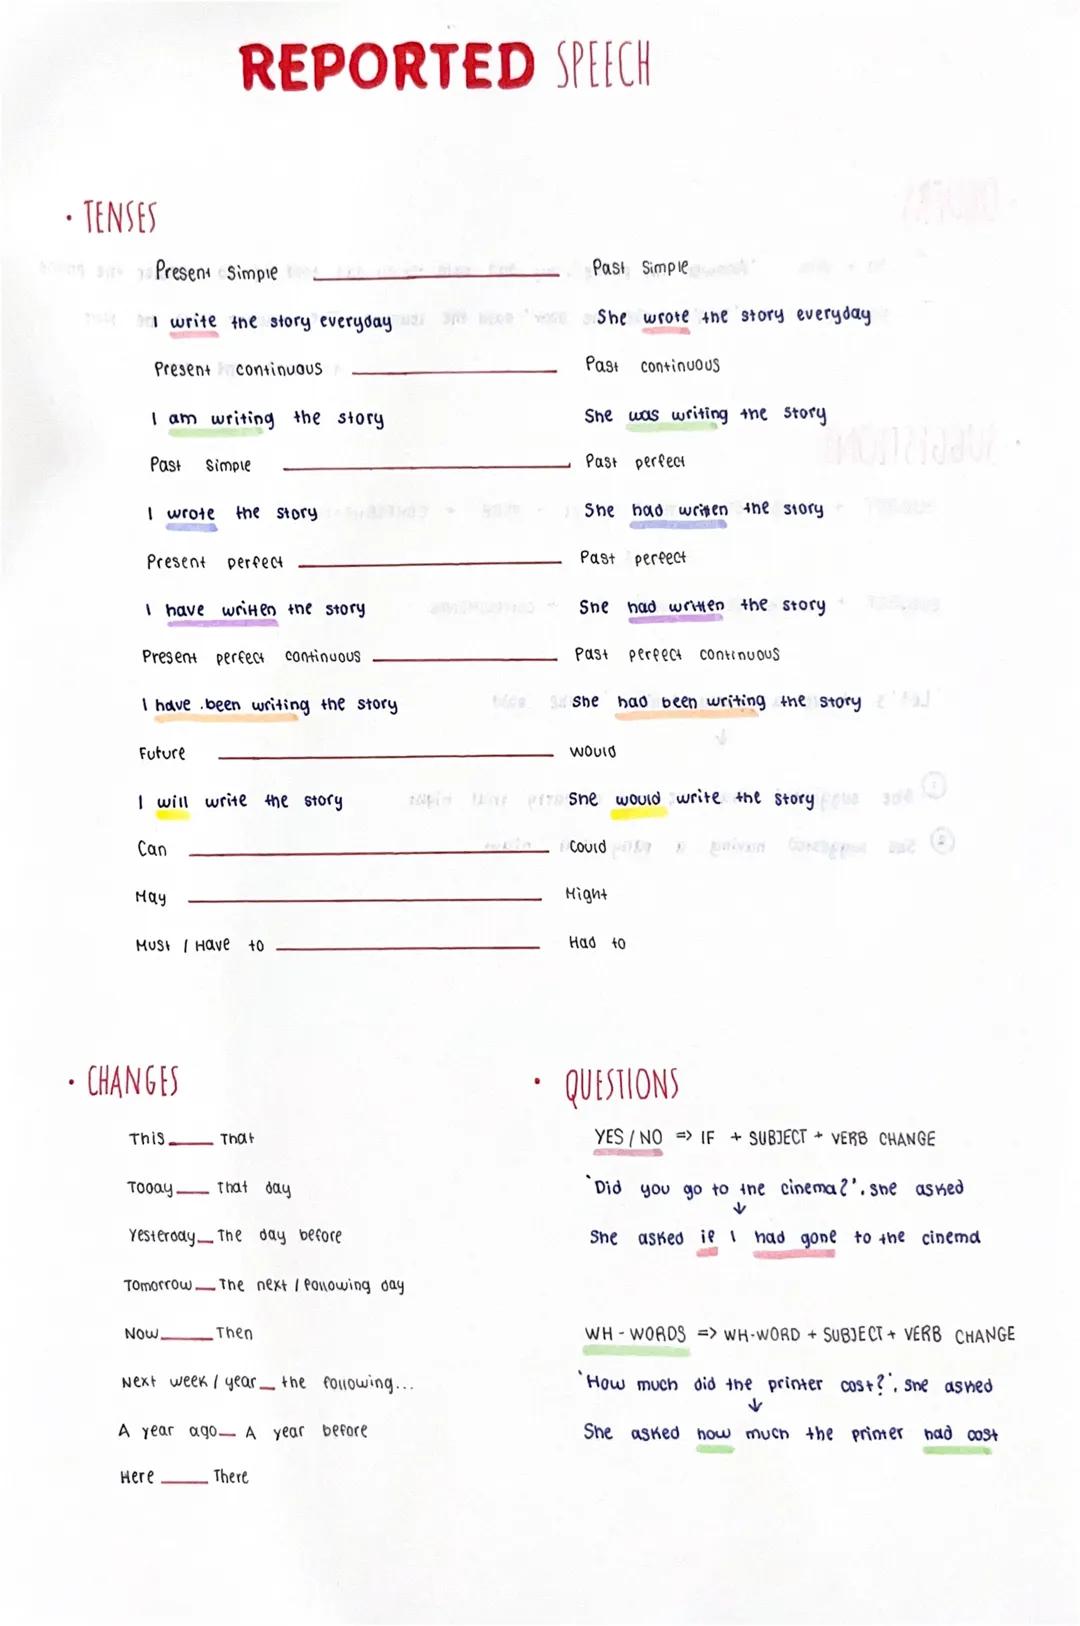 REPORTED SPEECH
· TENSES
Present Simple ——— Past Simple
I write the story everyday She wrote the story everyday
Present continuous ——— Past continuous
I am writing the story She was writing the story
Past Simple ——— Past perfect
I wrote the story She had writen the story
Present perfect ——— Past perfect
I have written the story She had written the story
Present perfect continuous ——— Past perfect continuous
I have been writing the story She had been writing the story
Future ——— would
I will write the story She would write the story
Can ——— Could
May ——— Might
Must / Have to ——— Had to
· CHANGES
This — That
Today — That day
Yesterday — The day before
Tomorrow — The next / following day
Now — Then
Next week / year — the following...
A year ago — A year before
Here — There
· QUESTIONS
YES / NO => IF + SUBJECT + VERB CHANGE
'Did you go to the cinema?', she asked
↓
She asked if I had gone to the cinema
WH - WORDS => WH-WORD + SUBJECT + VERB CHANGE
'How much did the printer cost?', she asked
↓
She asked how much the printer had cost